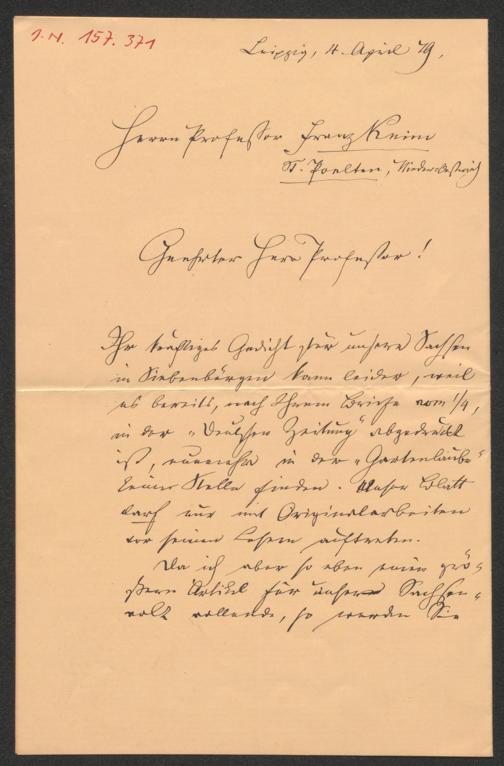 I.N. 157.371
Leipzig, 4. April 79.
Herrn Professor Franz Keim
St. Poelten, Niederösterreich
Geehrter Herr Professor!
Ihr kräftiges Gedicht für unsere Sachsen
in Siebenbürgen kann leider, weil
es bereits, nach Ihrem Briefe vom 1/4,
in der „Deutschen Zeitung" abgedruckt
ist, nunmehr in der „Gartenlaube"
keine Stelle finden. Unser Blatt
darf nur mit Originalarbeiten
vor seinen Lesern auftreten.
Da ich aber so eben einen grö-
ßern Artikel für unser Sachsen-
volk vollende, so werden Sie